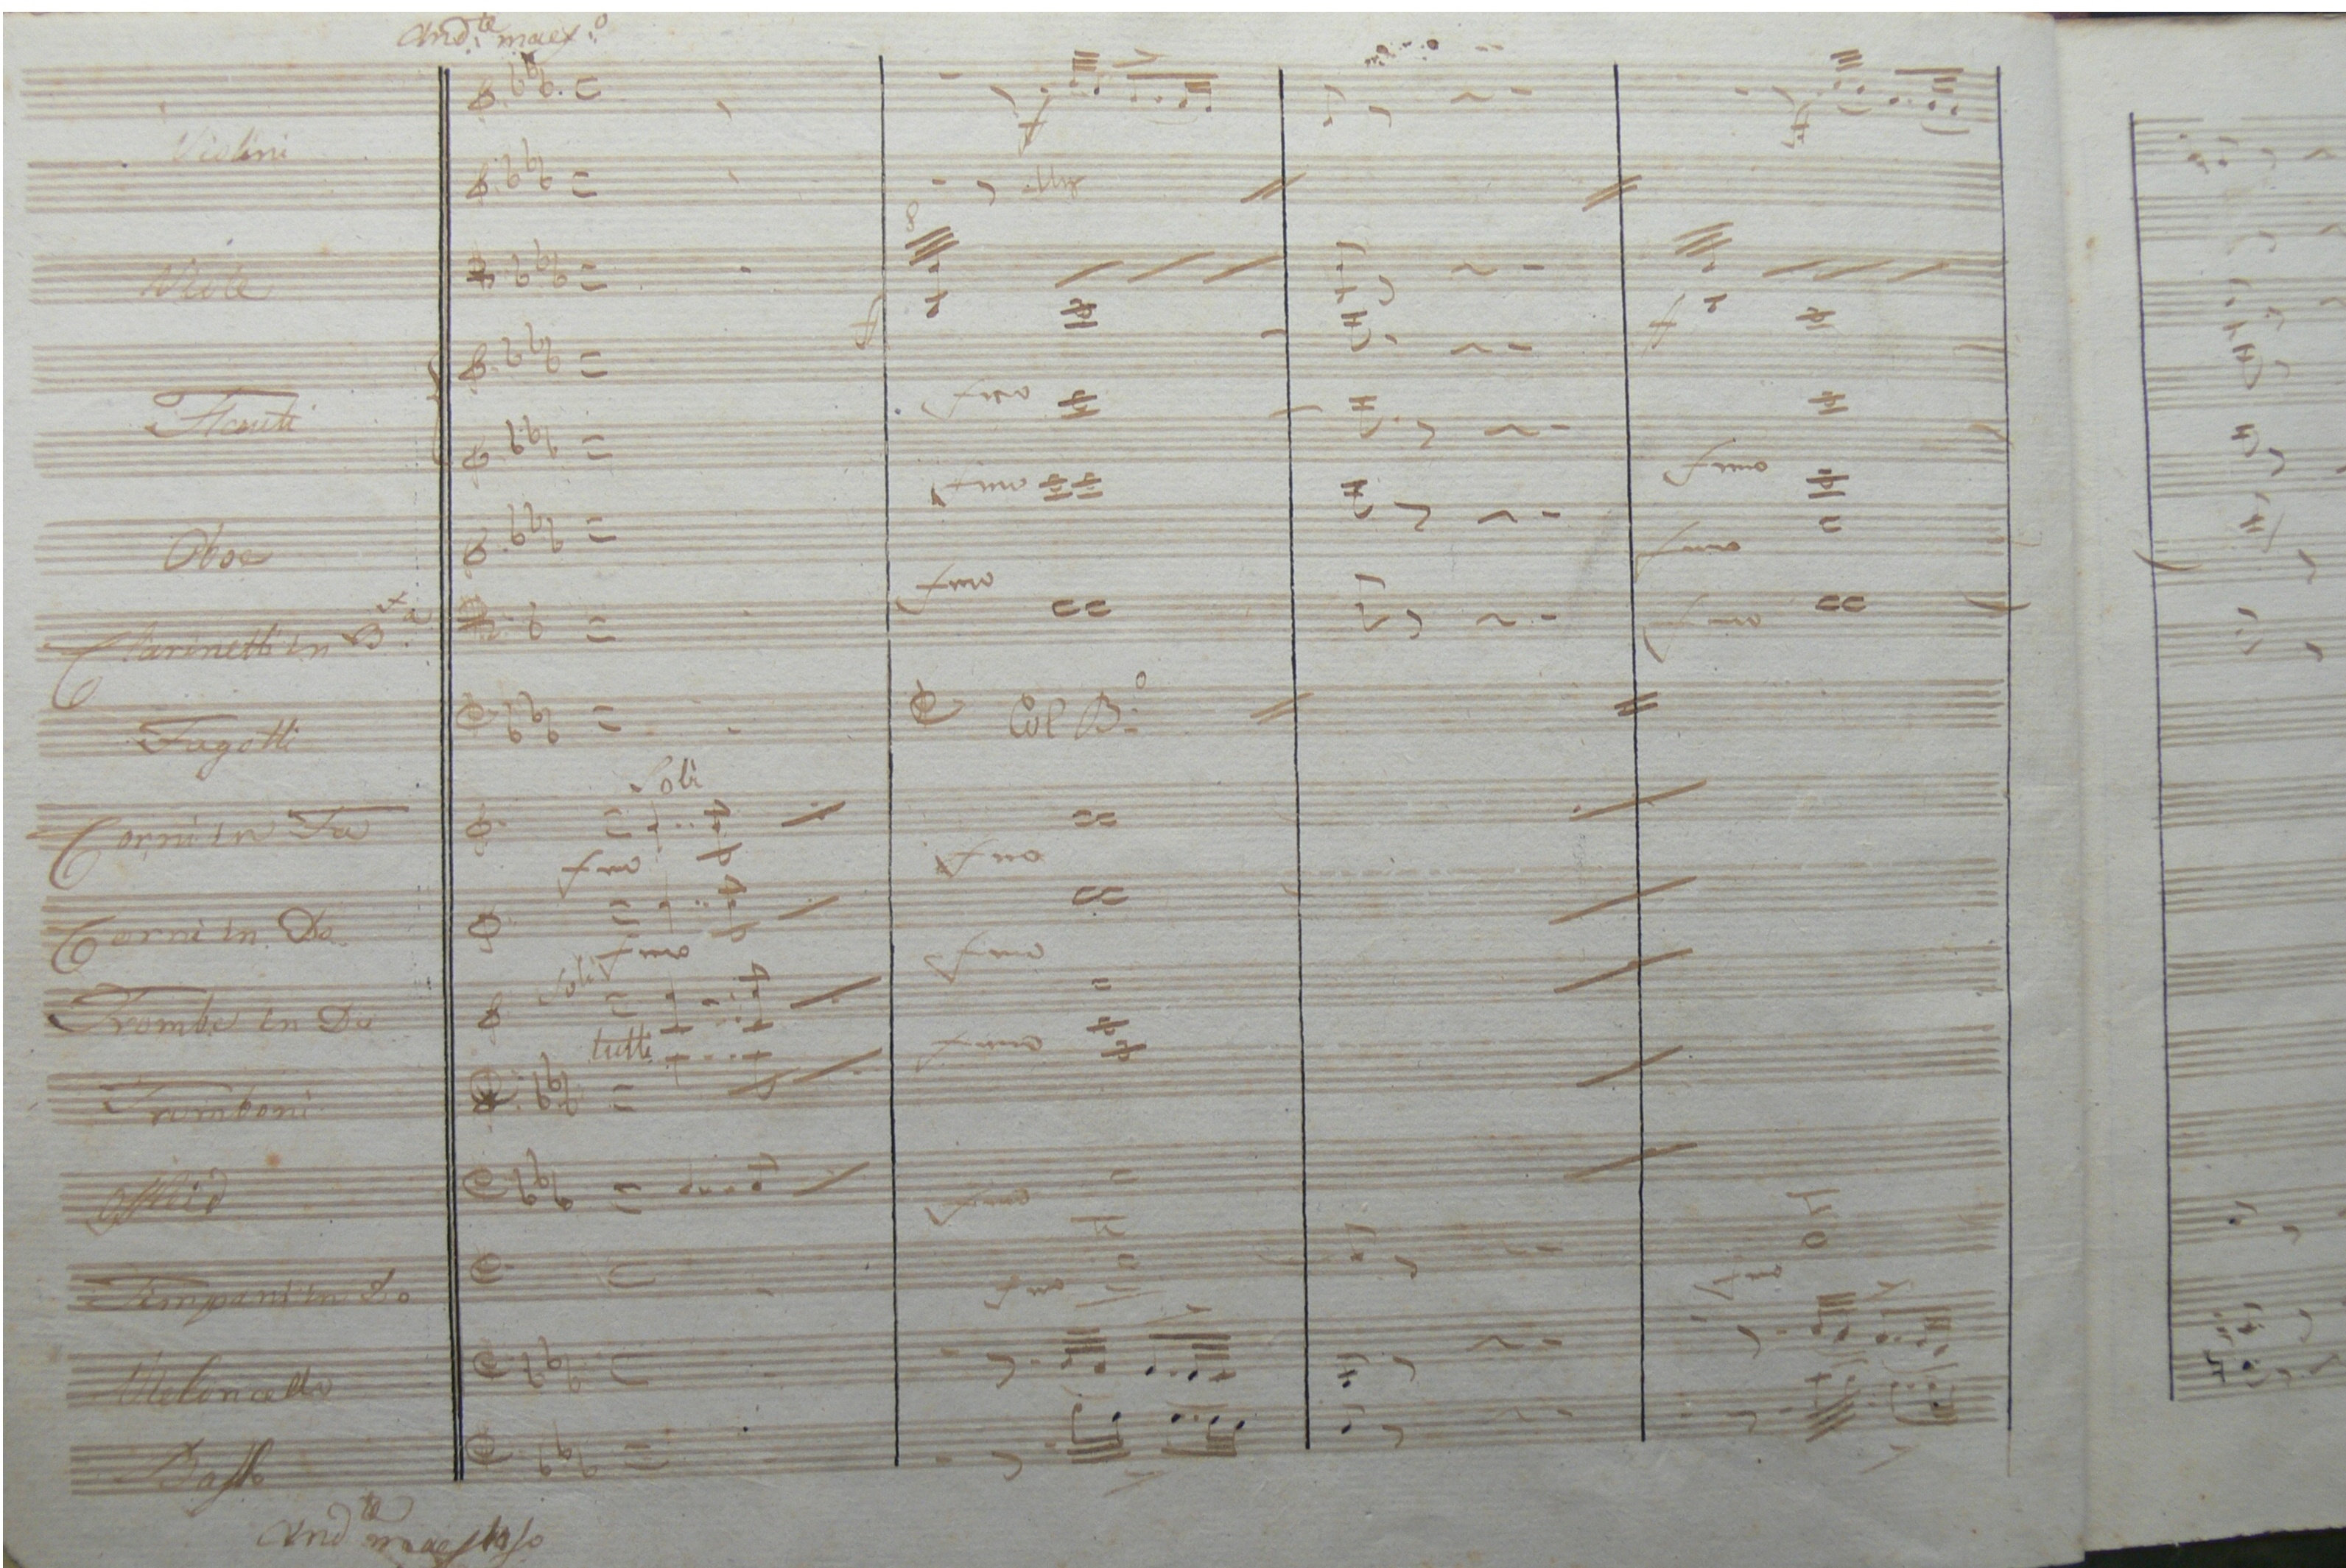 And.te maes.o
Violini
Viole
Flauti
Oboe
Clarinetti in B.fa
Fagotti
Corni in Fa
Corni in Do
Trombe in Do
Tromboni
Timpani in Do
Violoncello
Basso
8
f
f
f
f
fmo
fmo
fmo
fmo
fmo
fmo
Col B.o
Soli
fmo
fmo
fmo
fmo
Soli
tutti
fmo
fmo
fmo
fmo
And.te maestoso